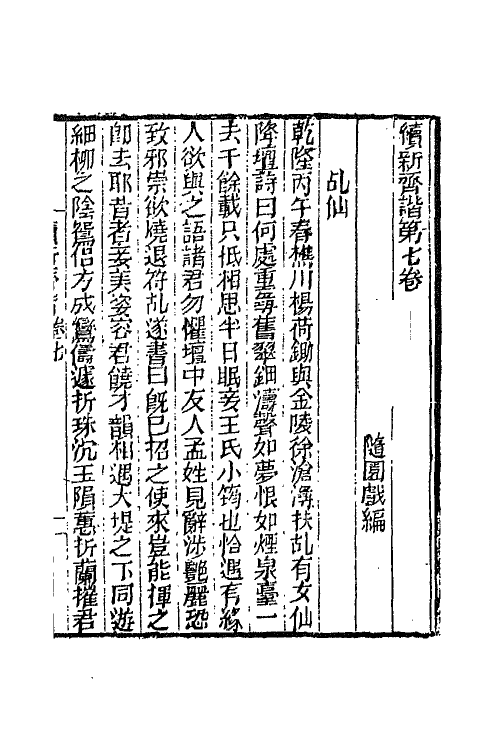 續新齊諧第七卷
隨園戲編
乩仙
乾隆丙午春樵川楊荷鋤與金陵徐滄濤扶乩有女仙
降壇詩曰何處重尋舊翠鈿濤聲如夢恨如煙泉臺一
去千餘載只抵相思半日眠妾王氏小筠也恰遇有緣
人欲與之語諸君勿懼壇中友人孟姓見辭涉艷麗恐
致邪祟欲燒退符乩遂書曰旣已招之使來豈能揮之
卽去耶昔者妾美姿容君饒才韻相遇大堤之下同遊
細柳之陰鴛侶方成鸞儔遽折珠沉玉隕蕙折蘭摧君